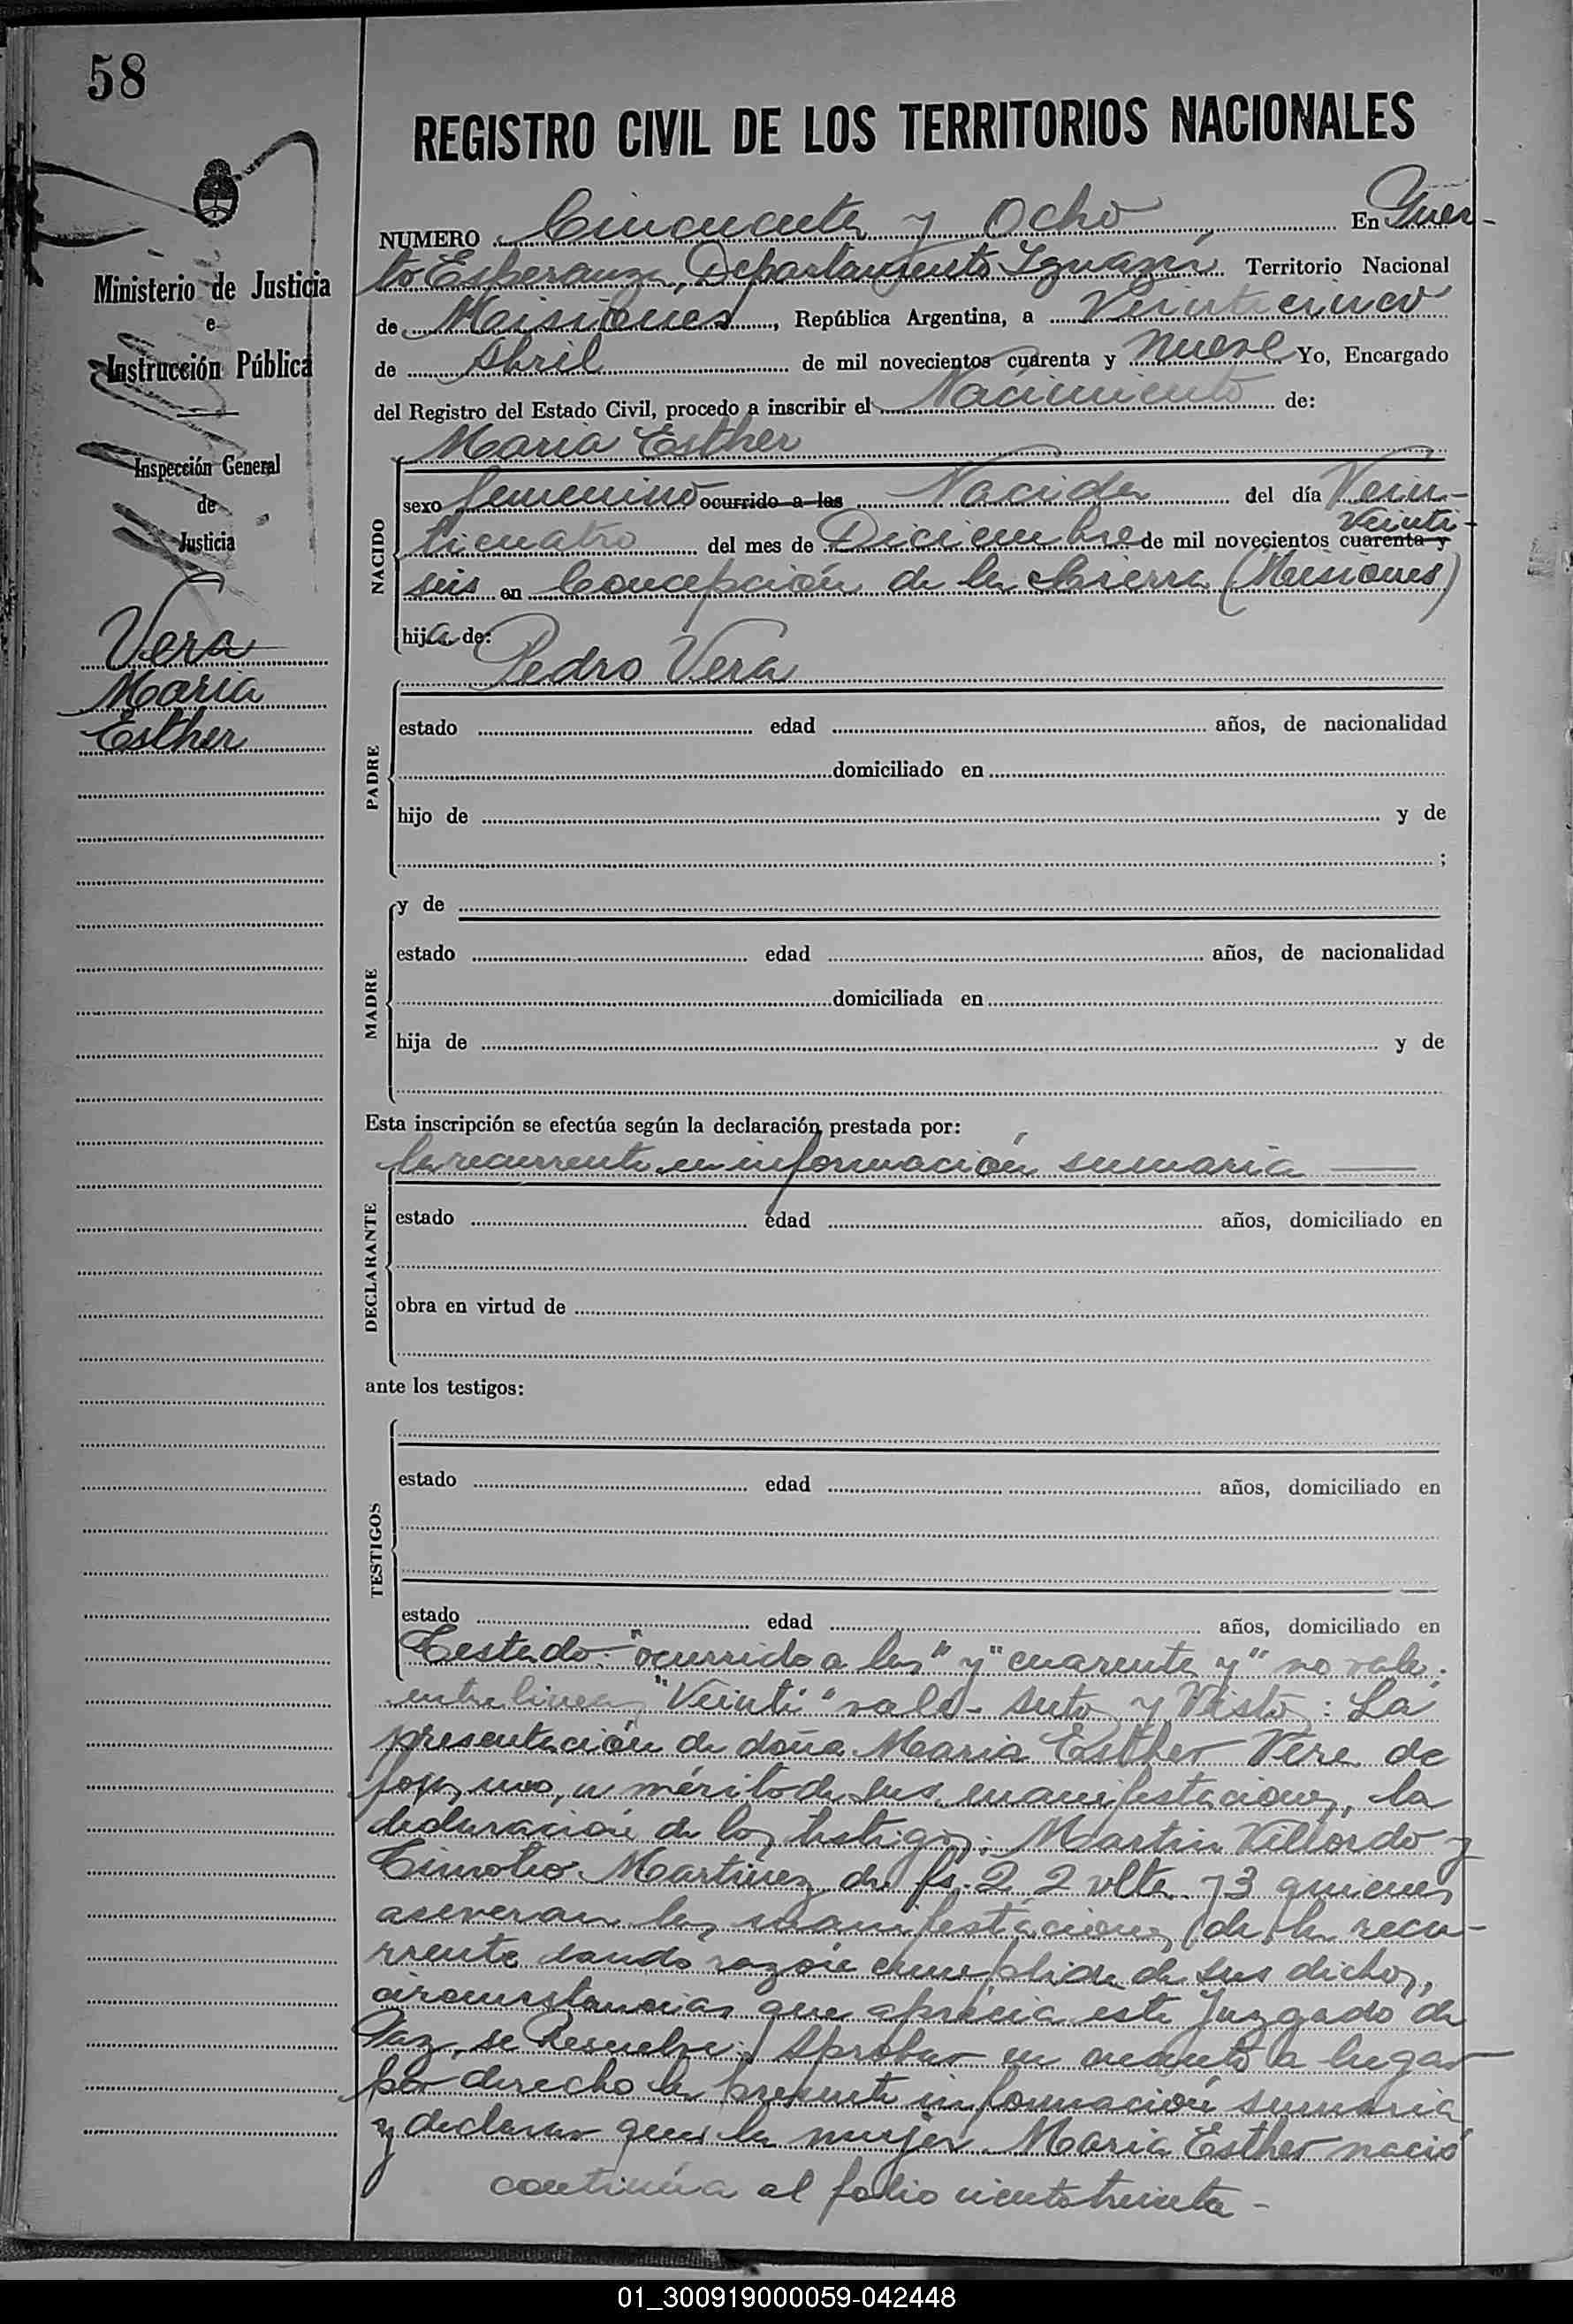 58
REGISTRO CIVIL DE LOS TERRITORIOS NACIONALES
Ministerio de Justicia
e
Instrucción Pública
Inspección General
de
Justicia
Vera
Maria
Esther
NUMERO Cincuenta y Ocho En Puer-
to Esperanza, Departamento Iguazú Territorio Nacional
de Misiones, República Argentina, a Veinticinco
de Abril de mil novecientos cuarenta y nueve Yo, Encargado
del Registro del Estado Civil, procedo a inscribir el Nacimiento de:
Maria Esther
NACIDO
sexo femenino ocurrido a las Nacida del día Vein-
ticuatro del mes de Diciembre de mil novecientos cuarenta y Veinti-
seis en Concepción de la Sierra (Misiones)
hija de:
Pedro Vera
PADRE
estado edad años, de nacionalidad
domiciliado en
hijo de y de
;
MADRE
y de
estado edad años, de nacionalidad
domiciliada en
hija de y de
Esta inscripción se efectúa según la declaración prestada por:
la recurrente en información sumaria
DECLARANTE
estado edad años, domiciliado en
obra en virtud de
ante los testigos:
TESTIGOS
estado edad años, domiciliado en
estado edad años, domiciliado en
Testado: "ocurrido a las" y "cuarenta y" no vale.
entre lineas "Veinti" vale - Auto y Visto: La
presentación de doña Maria Esther Vera de
mérito de sus manifestaciones, la
declaración de los testigos: Martin Villordo y
Timoteo Martinez de fs. 2 2 vlta y 3 quienes
aseveran las manifestaciones de la recu-
rrente dando razón cumplida de sus dichos,
circunstancias que aprecia este Juzgado de
Paz, se Resuelve: Aprobar en cuanto a lugar
por derecho la presente información sumaria
y declarar que la mujer Maria Esther nació
continúa al folio ciento treinta -
01_300919000059-042448